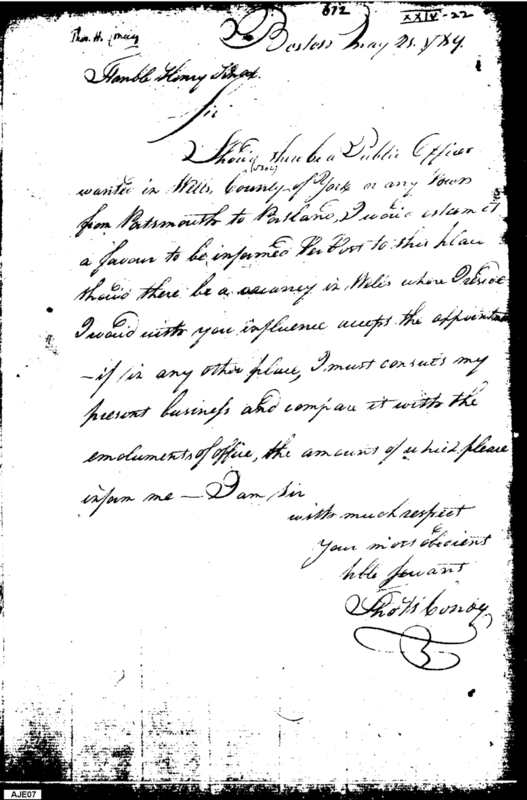 672
XXIV-22
Boston May 21. 1789.
Honble Henry Knox.
Sir
Should there be a Public Officer
wanted in Wells, County of York or any Town
from Portsmouth to Portland, I would esteem it
a favour to be informed Per Post to this place
should there be a vacancy in Wells where I reside
I would with you influence accept the appointme
- if in any other place, I must consult my
present business and compare it with the
emoluments of office, the amount of which please
inform me — I am Sir
with much respect
your most obedient
hble Servant
AJE07